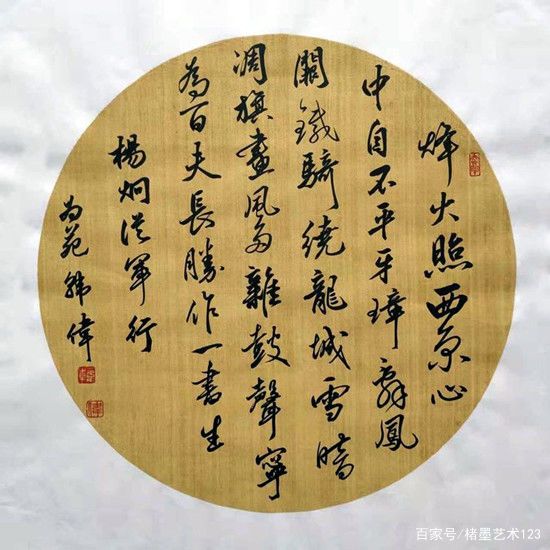 烽火照西京心
中自不平牙璋辭鳳
闕鐵騎繞龍城雪暗
凋旗畫風多雜鼓聲寧
為百夫長勝作一書生
楊炯從軍行
尚苑韓偉
百家号/楮墨艺术123